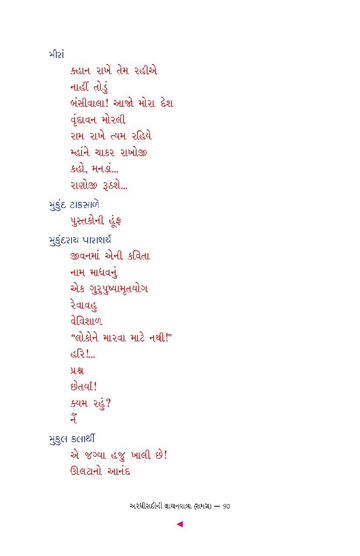 મીરાં
ક્હાન રાખે તેમ રહીએ
નાહીં તોડું
બંસીવાલા! આજો મોરા દેશ
વૃંદાવન મોરલી
રામ રાખે ત્યમ રહિયે
મ્હાંને ચાકર રાખોજી
કહો, મનડાં...
રાણોજી રૂઠશે...
મુકુંદ ટાકસાળે
પુસ્તકોની હૂંફ
મુકુંદરાય પારાશર્ય
જીવનમાં એની કવિતા
નામ માધવનું
એક ગુરુપુષ્યામૃતયોગ
રેવાવહુ
વેવિશાળ
“લોકોને મારવા માટે નથી!”
હરિ!...
પ્રશ્ન
છેતર્યાં!
ક્યમ રહું?
નૈં
મુકુલ કલાર્થી
એ જગ્યા હજુ ખાલી છે!
ઊલટાનો આનંદ
અરધી સદીની વાચનયાત્રા (સમગ્ર) — 90